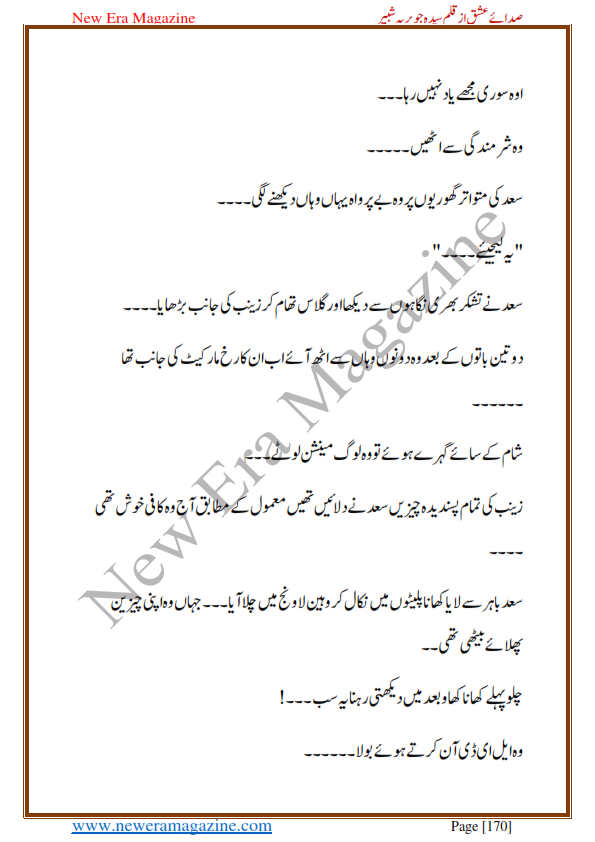 New Era Magazine
صدائے عشق از قلم سیدہ جویریہ شبیر
اوہ سوری مجھے یاد نہیں رہا۔۔۔
وہ شرمندگی سے اٹھیں۔۔۔۔۔
سعد کی متواتر گھوریوں پر وہ بے پرواہ یہاں وہاں دیکھنے لگی۔۔۔۔
"یہ لیجیئے۔۔۔۔"
سعد نے تشکر بھری نگاہوں سے دیکھا اور گلاس تھام کر زینب کی جانب بڑھایا۔۔۔۔
دو تین باتوں کے بعد وہ دونوں وہاں سے اٹھ آئے اب ان کا رخ مارکیٹ کی جانب تھا
۔۔۔۔۔۔
شام کے سائے گہرے ہوئے تو وہ لوگ مینشن لوٹے۔۔۔
زینب کی تمام پسندیدہ چیزیں سعد نے دلائیں تھیں معمول کے مطابق آج وہ کافی خوش تھی
۔۔۔۔
سعد باہر سے لایا کھانا پلیٹوں میں نکال کر وہین لاونج میں چلا آیا۔۔۔ جہاں وہ اپنی چیزین
پھلائے بیٹھی تھی۔۔
چلو پہلے کھانا کھاو بعد میں دیکھتی رہنا یہ سب۔۔۔!
وہ ایل ای ڈی آن کرتے ہوئے بولا۔۔۔۔۔۔
New Era Magazine
www.neweramagazine.com
Page [170]